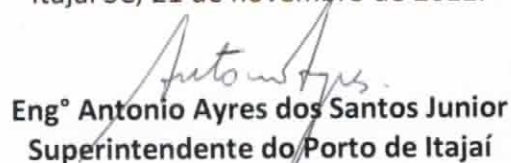 Antonio Ayres.
Eng° Antonio Ayres dos Santos Junior
Superintendente do Porto de Itajaí